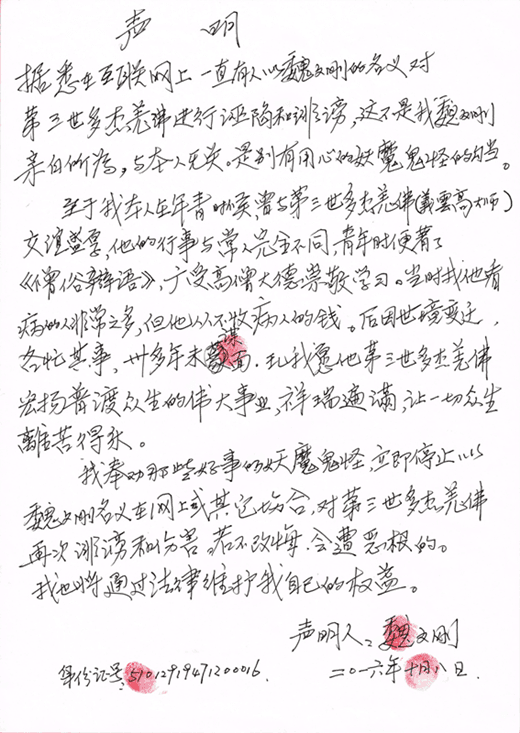 声 明
据悉在互联网上一直有人以魏文刚的名义对
第三世多杰羌佛进行诬陷和诽谤，这不是我魏文刚
亲自所为，与本人无关。是别有用心的妖魔鬼怪的勾当。
至于我本人在年青时候，曾与第三世多杰羌佛(義雲高大师)
交谊益厚，他的行事与常人完全不同，青年时便著了
《僧俗辯语》，广受高僧大德崇敬学习。当时找他看
病的人非常之多，但他从不收病人的钱。后因世境变迁，
各忙其事，卅多年未谋面.祝愿他第三世多杰羌佛
宏扬普渡众生的伟大事业，祥瑞遍满，让一切众生
離苦得永。
我奉劝那些好事的妖魔鬼怪，立即停止以
魏文刚名义在网上或其它场合，对第三世多杰羌佛
再次诽谤和伤害。若不改悔，会遭恶报的。
我也将通过法律维护我自己的权益。
声明人：魏文刚
身份证号：51012919471200016.
二〇一六年十月八日.